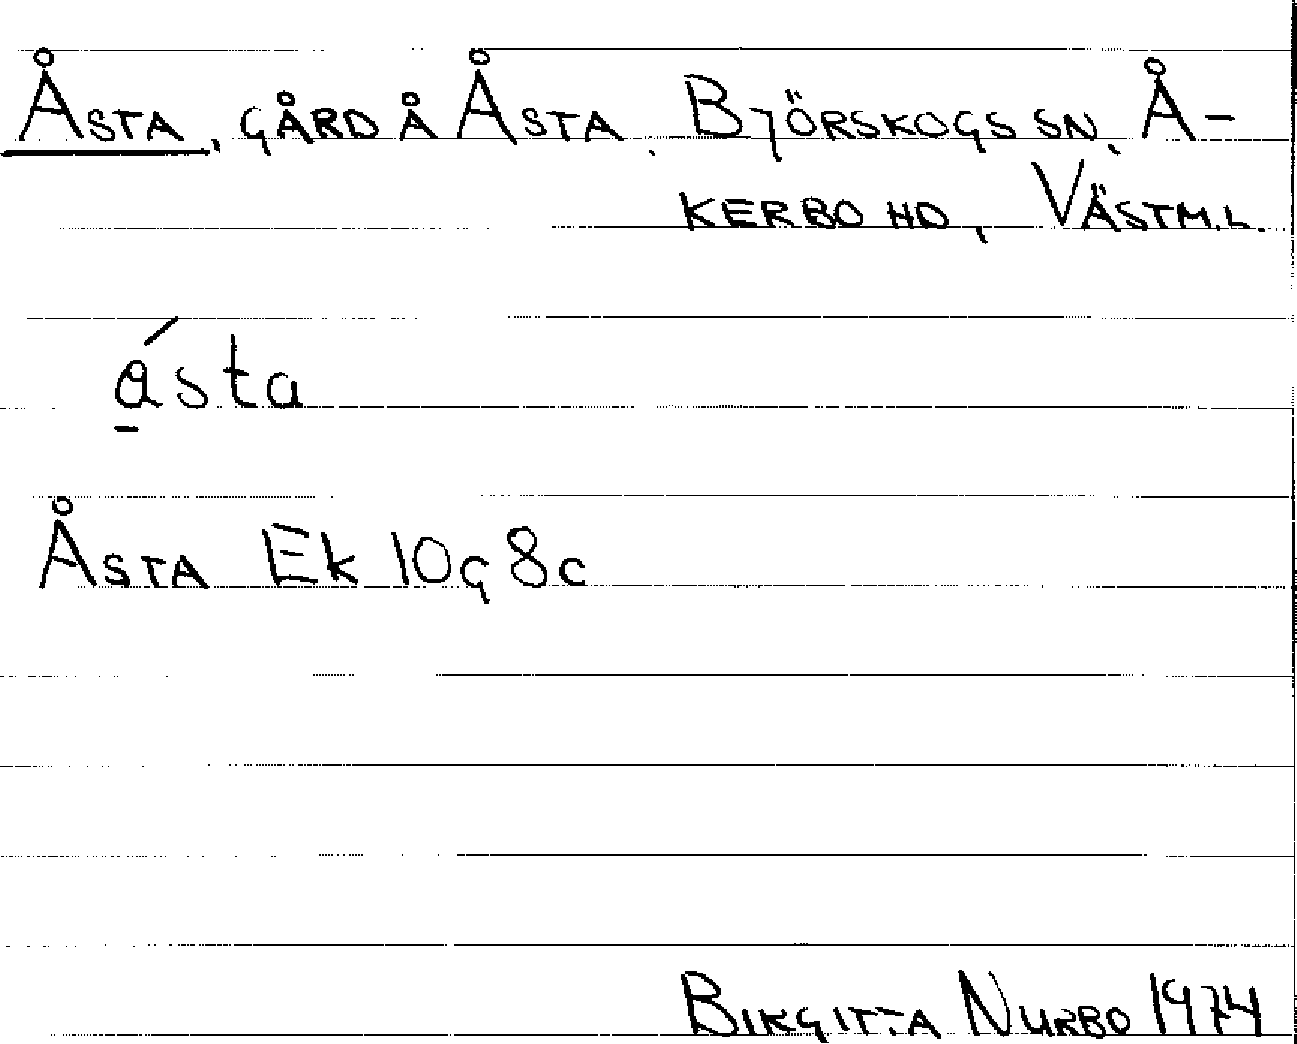 Åsta, gård å Åsta, Björskogs sn, Å-
kerbo hd, Västm.l.
ásta
Åsta Ek 10g 8c
Birgitta Nurbo 1974